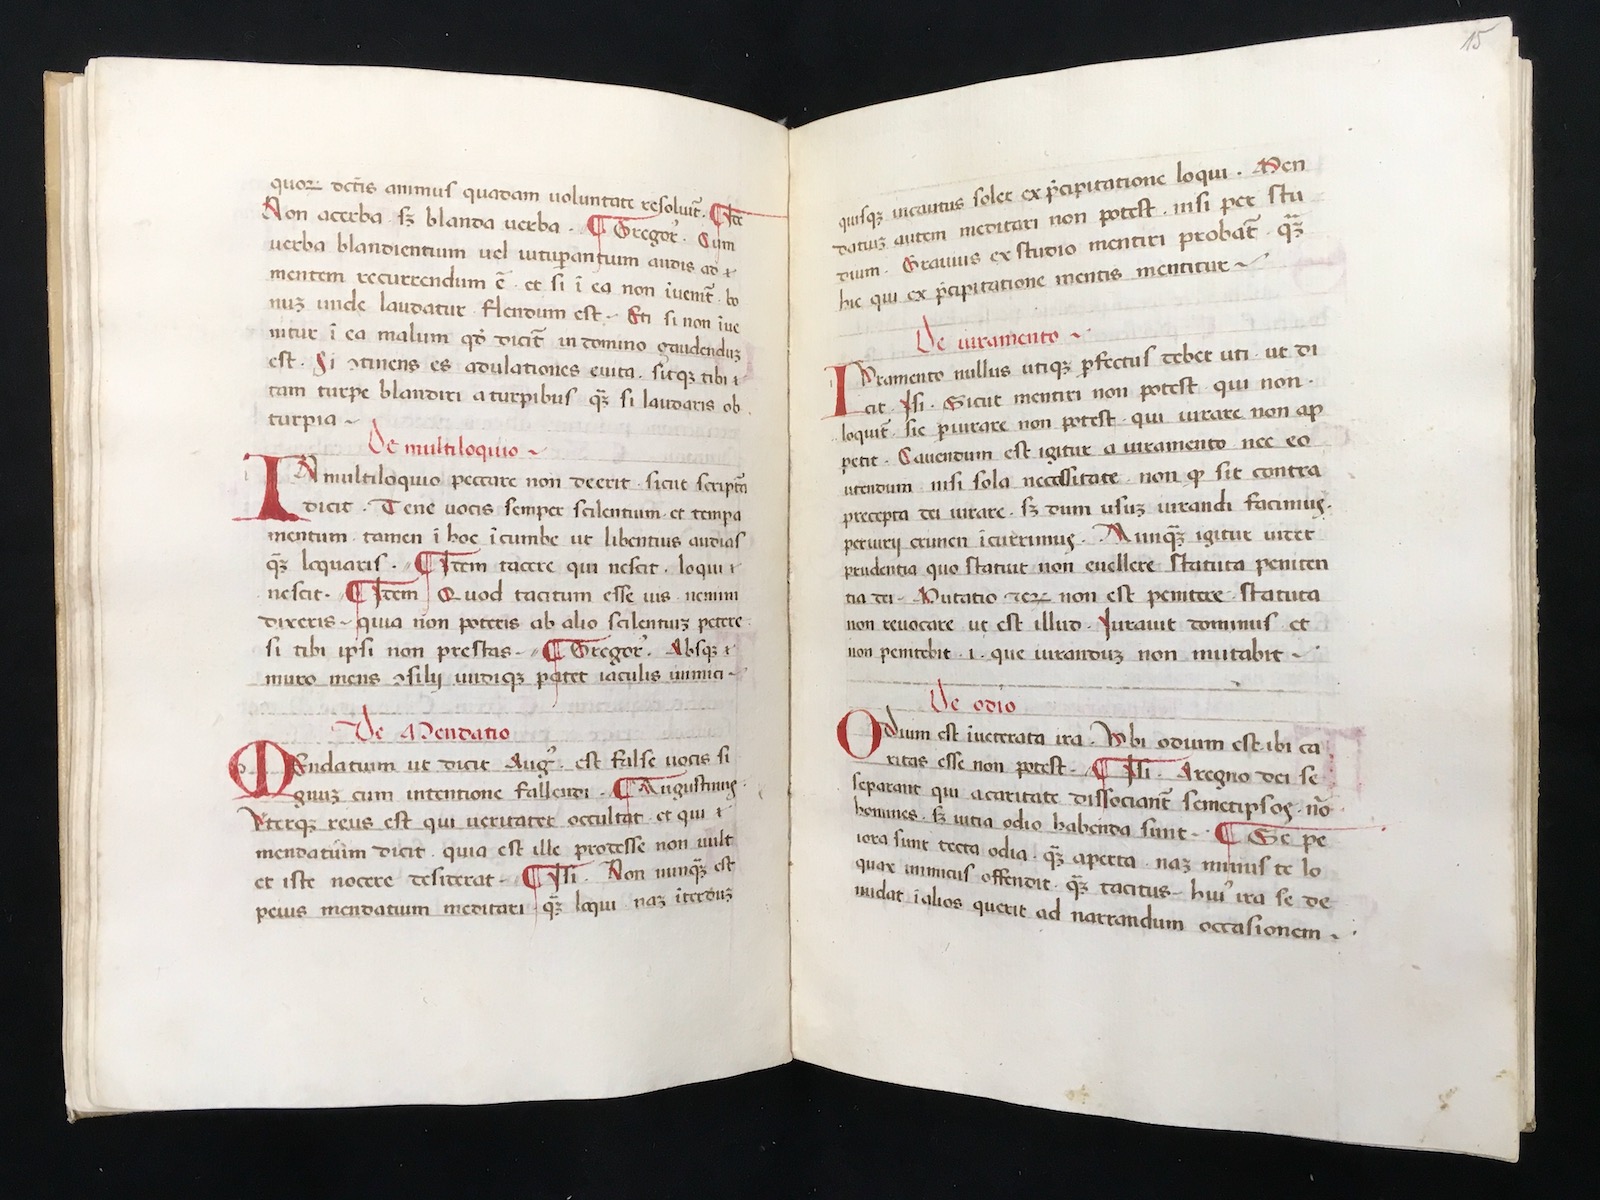 quoꝝ dictis animus quadam voluntate resoluit̄. ¶ Ite
Non acerba sꝫ blanda uerba. ¶ Gregor᷒. Cum
uerba blandientium uel uitup̱antium audis ad
mentem recurrendum ē. et si ī ea non īuenit̄ bo
nuꝫ unde laudatur flendum est ~ Et si non īue
nitur ī ea malum qđ dicit̄ in domino gaudenduꝫ
est. Si ↄtinens es adulationes euita. sitqꝫ tibi
tam turpe blandiri a turpibus qꝫ̄ si laudaris ob
turpia ~
De multiloquio ~
IN multiloquio peccare non deerit. sicut scriptā
dicit. Tene uocis semper scilentium et tempa
mentum. tamen ī hoc īcumbe ut libentius audias
qꝫ̄ loquaris. ¶ Item tacere qui nescit. loqui
nescit. ¶ Item Quod tacitum esse uis nemini
dixeris ~ quia non poteris ab alio scilentuꝫ petere
si tibi ipsi non prestas ~ ¶ Gregor᷒. Absqꝫ
muro mens ↄsilij undiqꝫ patet iaculis inimici ~
De Mendatio
MEndatium ut dicit Aug᷒. est false uocis si
gnuꝫ cum intentione fallendi. ¶ Augustinuꝯ.
Vterqꝫ reus est qui ueritatem occultat et qui
mendatium dicit. quia est ille prodesse non uult
et iste nocere desiderat ~ ¶ Isi. Non nunqꝫ̄ est
peius mendatium meditari qꝫ̄ loqui. naꝫ īterduꝫ
15
quisqꝫ incautus solet ex p̄cipitatione loqui. Men
datiuꝫ autem meditari non potest. nisi per stu
dium. Grauius ex studio mentiri probat̄ qꝫ̄
hic qui ex p̄cipitatione mentis mentitur ~
De iuramento ~
IVramento nullus utiqꝫ ꝑfectus debet uti. ut di
cit. Isi. Sicut mentiri non potest. qui non
loquit̄. sic ꝑiurare non potest. qui iurare non ap
petit. Cauendum est igitur a iuramento nec eo
utendum. nisi sola necessitate. non ꝙ sit contra
precepta dei iurare. sꝫ dum usuꝫ iurandi facimuꝯ.
periurij crimen īcurrimuꝯ. Nunqꝫ̄ igitur iuret
prudentia quo statuit non euellere statuta peniten
tia dei ~ Mutatio non est penitere statuta
non reuocare ut est illud. Iurauit dominus et
non penitebit .i. que iurauduꝫ non mutabit ~
De odio
Odium est īueterata ira. Vbi odium est ibi ca
ritas esse non potest ~ ¶ Isi. A regno dei se
separant qui a caritate dissociant̄ semetipsos. nō
homines. sꝫ uitia odio habenda sunt ~ ¶ Se pe
iora sunt tecta odia. qꝫ̄ aperta. naꝫ minus te lo
quax inimicus offendit. qꝫ̄ tacitus ~ hui᷒ ira se de
nudat ī alios querit ad narrandum occasionem ~